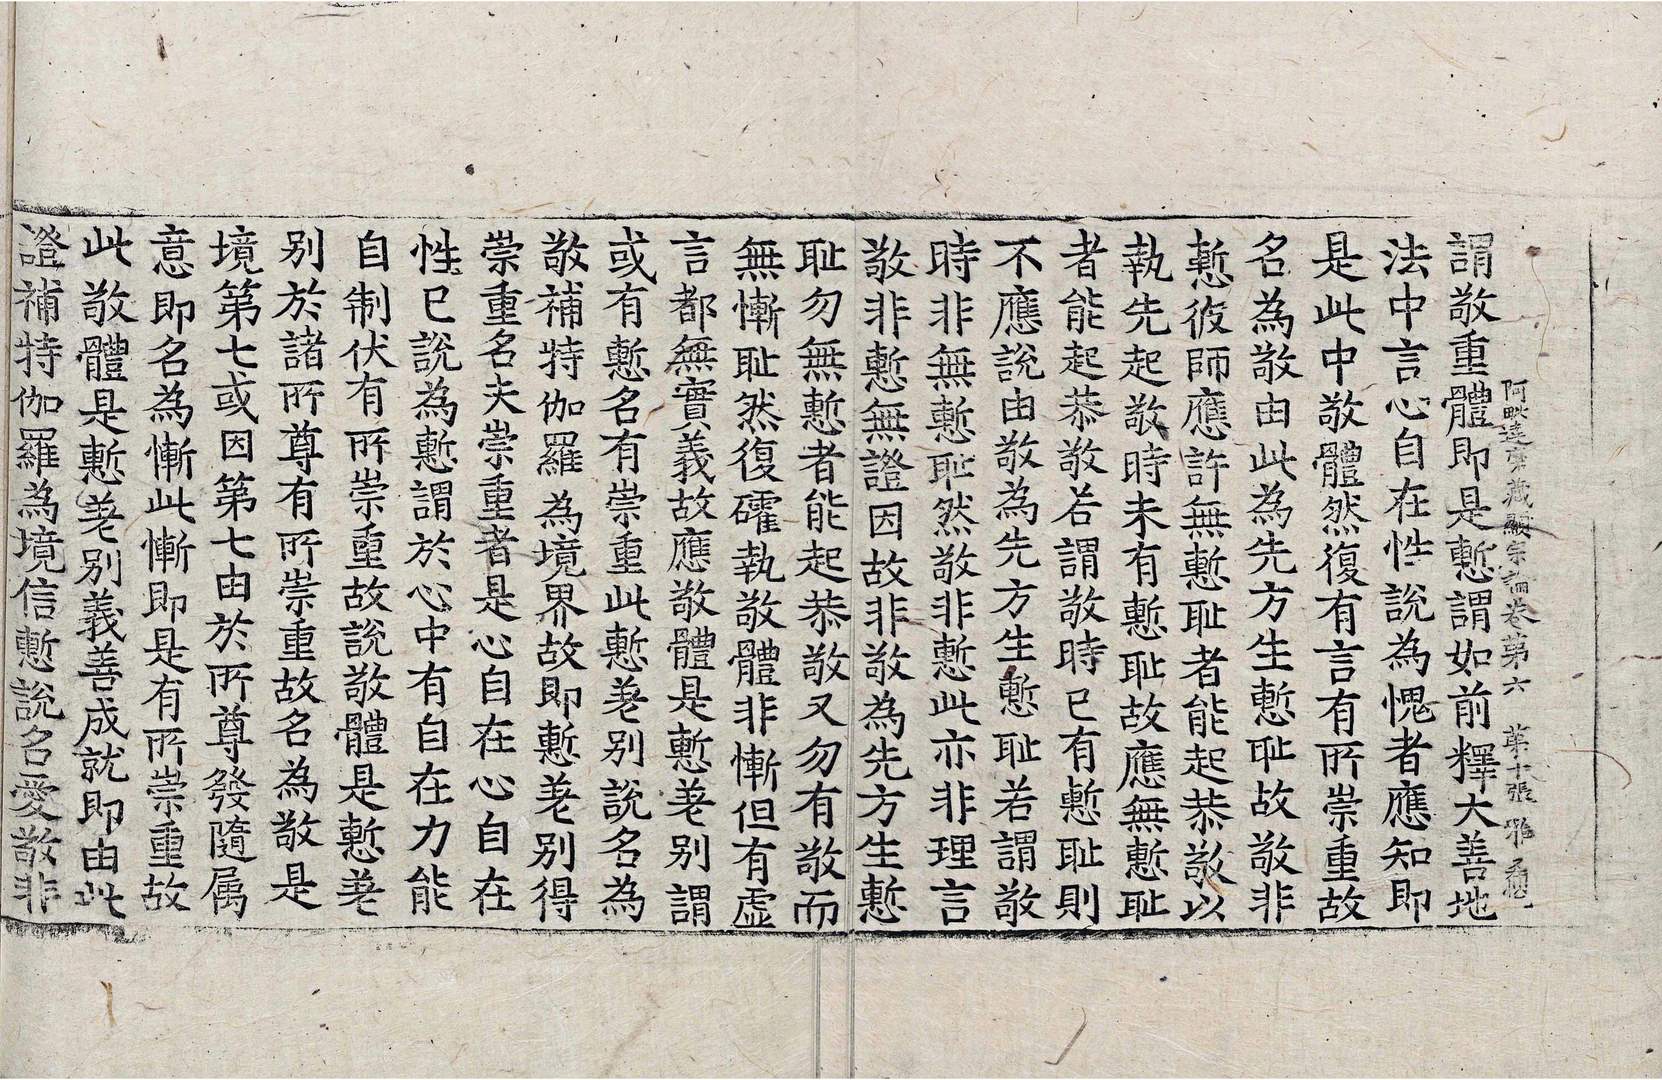 阿毗達磨藏顯宗論卷第六 第十張 雅
謂敬重體即是慙謂如前釋大善地
法中言心自在性說為愧者應知即
是此中敬體然復有言有所崇重故
名為敬由此為先方生慙耻故敬非
慙彼師應許無慙耻者能起恭敬以
執先起敬時未有慙耻故應無慙耻
者能起恭敬若謂敬時已有慙耻則
不應說由敬為先方生慙耻若謂敬
時非無慙耻然敬非慙此亦非理言
敬非慙無證因故非敬為先方生慙
耻勿無慙者能起恭敬又勿有敬而
無慚耻然復確執敬體非慚但有虛
言都無實義故應敬體是慙差別謂
或有慙名有崇重此慙差別說名為
敬補特伽羅為境界故即慙差別得
崇重名夫崇重者是心自在心自在
性已說為慙謂於心中有自在力能
自制伏有所崇重故說敬體是慙差
別於諸所尊有所崇重故名為敬是
境第七或因第七由於所尊發隨屬
意即名為慚此慚即是有所崇重故
此敬體是慙差別義善成就即由此
證補特伽羅為境信慙說名愛敬非